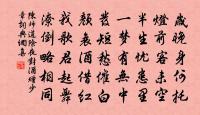 歲晚身何托
燈前客未空
半生忧患里
一夢有無中
髮短愁催白
顏衰酒借紅
我歌君起舞
潦倒略相同
陳師道除夜對酒贈少
章詞典網集